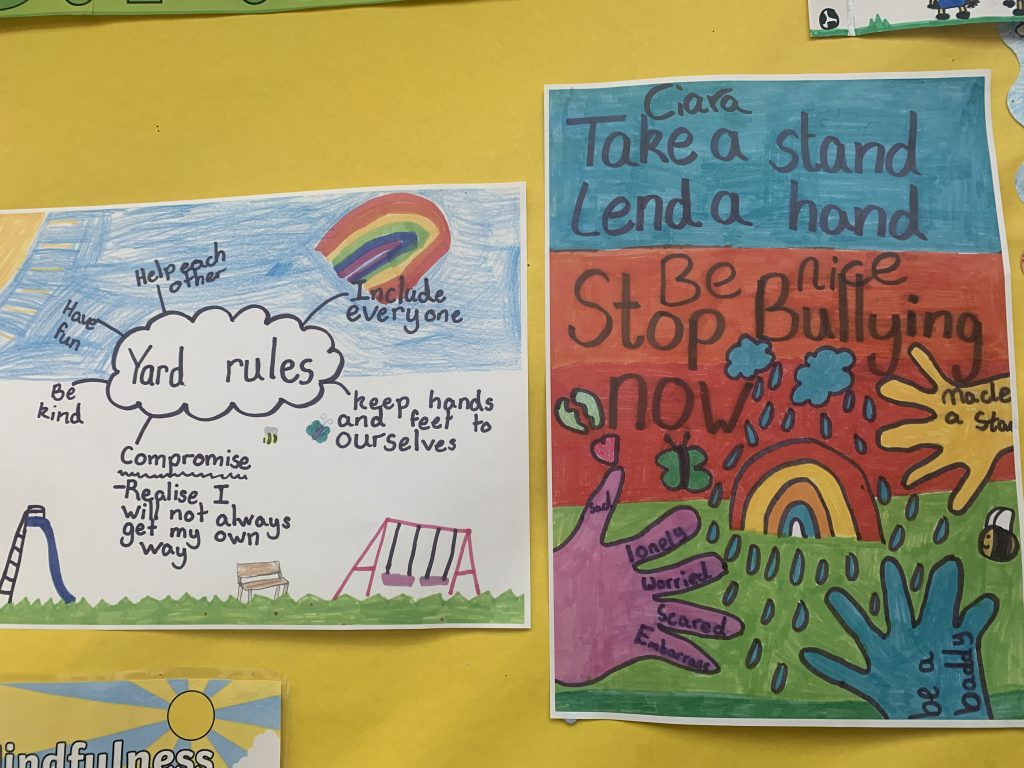 Help each
other
Have
fun
Include
everyone
Yard rules
Be
kind
keep hands
and feet to
ourselves
Compromise
-Realise I
will not always
get my own
way
Mindfulness
Ciara
Take a stand
Lend a hand
Be nice
Stop Bullying
now
a
Sad
lonely
Worried
Scared
Embarrass
be a
baddy